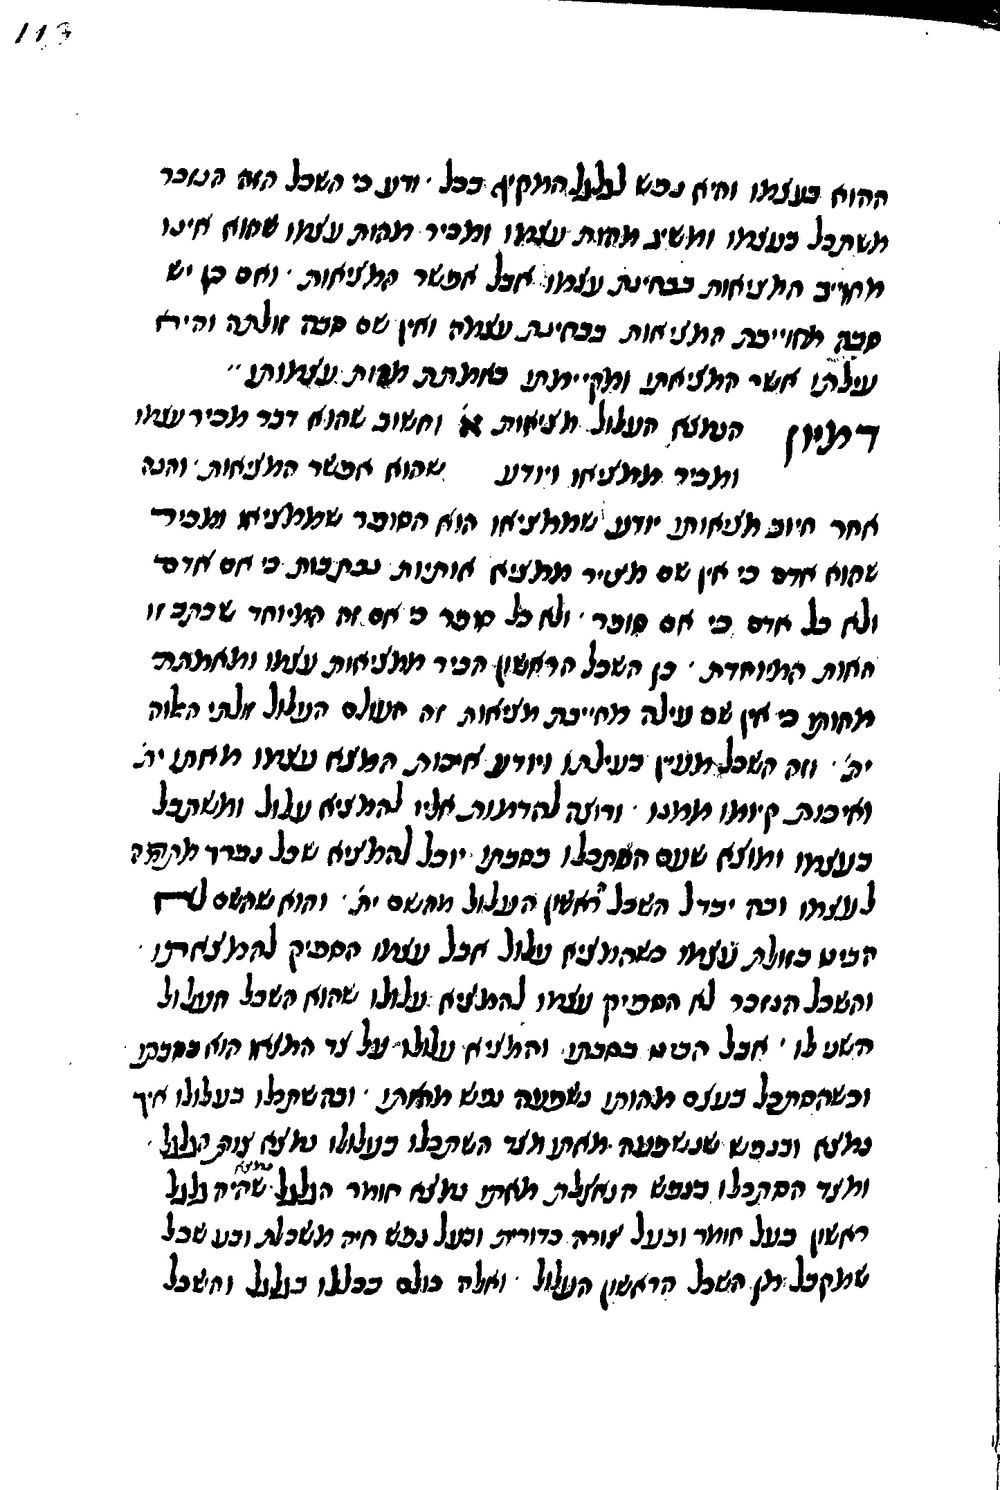 113
ההוא בעצמו והיא נפש לגלגל המקיף בכל · ודע כי השכל הזה הנזכר
משתכל בעצמו ומשיג מהות עצמו ומכיר מהות עצמו שהוא אינו
מחויב המציאות בבחינת עצמו אבל אפשר המציאות · ואם כן יש
סבה מחוייבת המציאות בבחינת עצמה ואין שם סבה זולתה והיא
עילתו אשר המציאתו ומקיימתו באמתת מהות עצמותו ״
דמיון הנמצא העלול מציאות א׳ וחשוב שהוא דבר מכיר עצמו
ומכיר ממציאו ויודע שהוא אפשר המציאות · והנה
אחר חיוב מציאותו יודע שממציאו הוא הסופר שממציאו ומכיר
שהוא אדם כי אין שם מצייר ממציא אותיות נכתבות כי אם אדם
ולא כל אדם כי אם סופר · ולא כל סופר כי אם זה המיוחד שכתב זו
האות המיוחדת · כן השכל הראשון הכיר ממציאות עצמו ומאמתת
מהותו כי אין שם עילה מחייבת מציאות זה העולם העלול זולתי האוה
ית׳ · וזה השכל מעיין בעילתו ויודע איכות המצא עצמו מאתו ית׳
ואיכות קיומו ממנו · ורוצה להדמות אליו להמציא עלול ומשתכל
בעצמו ומוצא שעם השתכלו בסבתו יוכל להמציא שכל נפרד מקומה
לעצמו ובה יבדל השכל ראשון העלול מהשם ית׳ · והוא שהשם לא
הביט בזולת עצמו כשהמציא עלול אבל עצמו הספיק להמצאתו ·
והשכל הנזכר לא הספיק עצמו להמציא עלולו שהוא השכל העלול
השני לו · אבל הביט בסבתו והמציא עלולו על צד המצאו הוא מסבתו
וכשהסתכל בעצם מהותו נשפעה נפש מאתו · ובהשתכלו בעלולו איך
נמצא ובנפש שנשפעה מאתו מצד השתכלו בעלולו נמצא צורת הגלגל ·
ומצד הסתכלו בנפש הנאצלת מאתו נמצא חומר הגלגל נמצא שהיה גלגל
ראשון בעל חומר ובעל צורה כדורית ובעל נפש חיה משכלת ובע שכל
שמקבל מן השכל הראשון העלול · ואלה כולם בכללו בגלגל והשכל